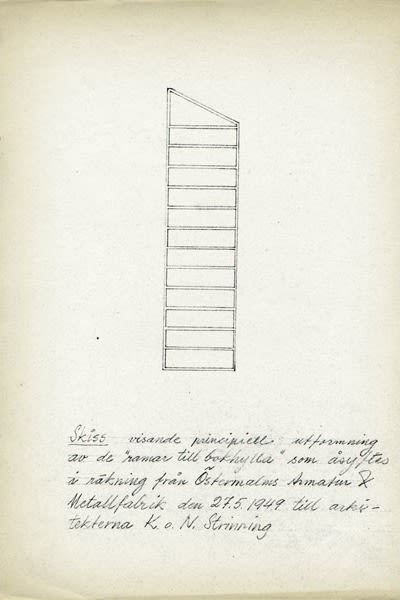 Skiss visande principiell utformning
av de "ramar till bokhylla" som åsyftas
i räkning från Östermalms Armatur &
Metallfabrik den 27.5.1949 till arki-
tekterna K. o. N. Strinning